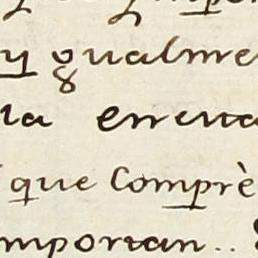 y gualme
la erreua
que Comprè
mportan..